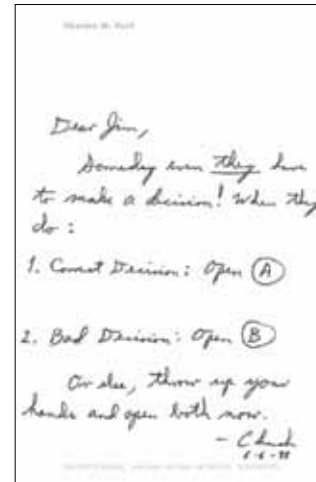 Dear Jim,
Someday even they have
to make a decision! When they
do:
1. Correct Decision: Open A
2. Bad Decision: Open B
Or else, throw up your
hands and open both now.
- Chuck